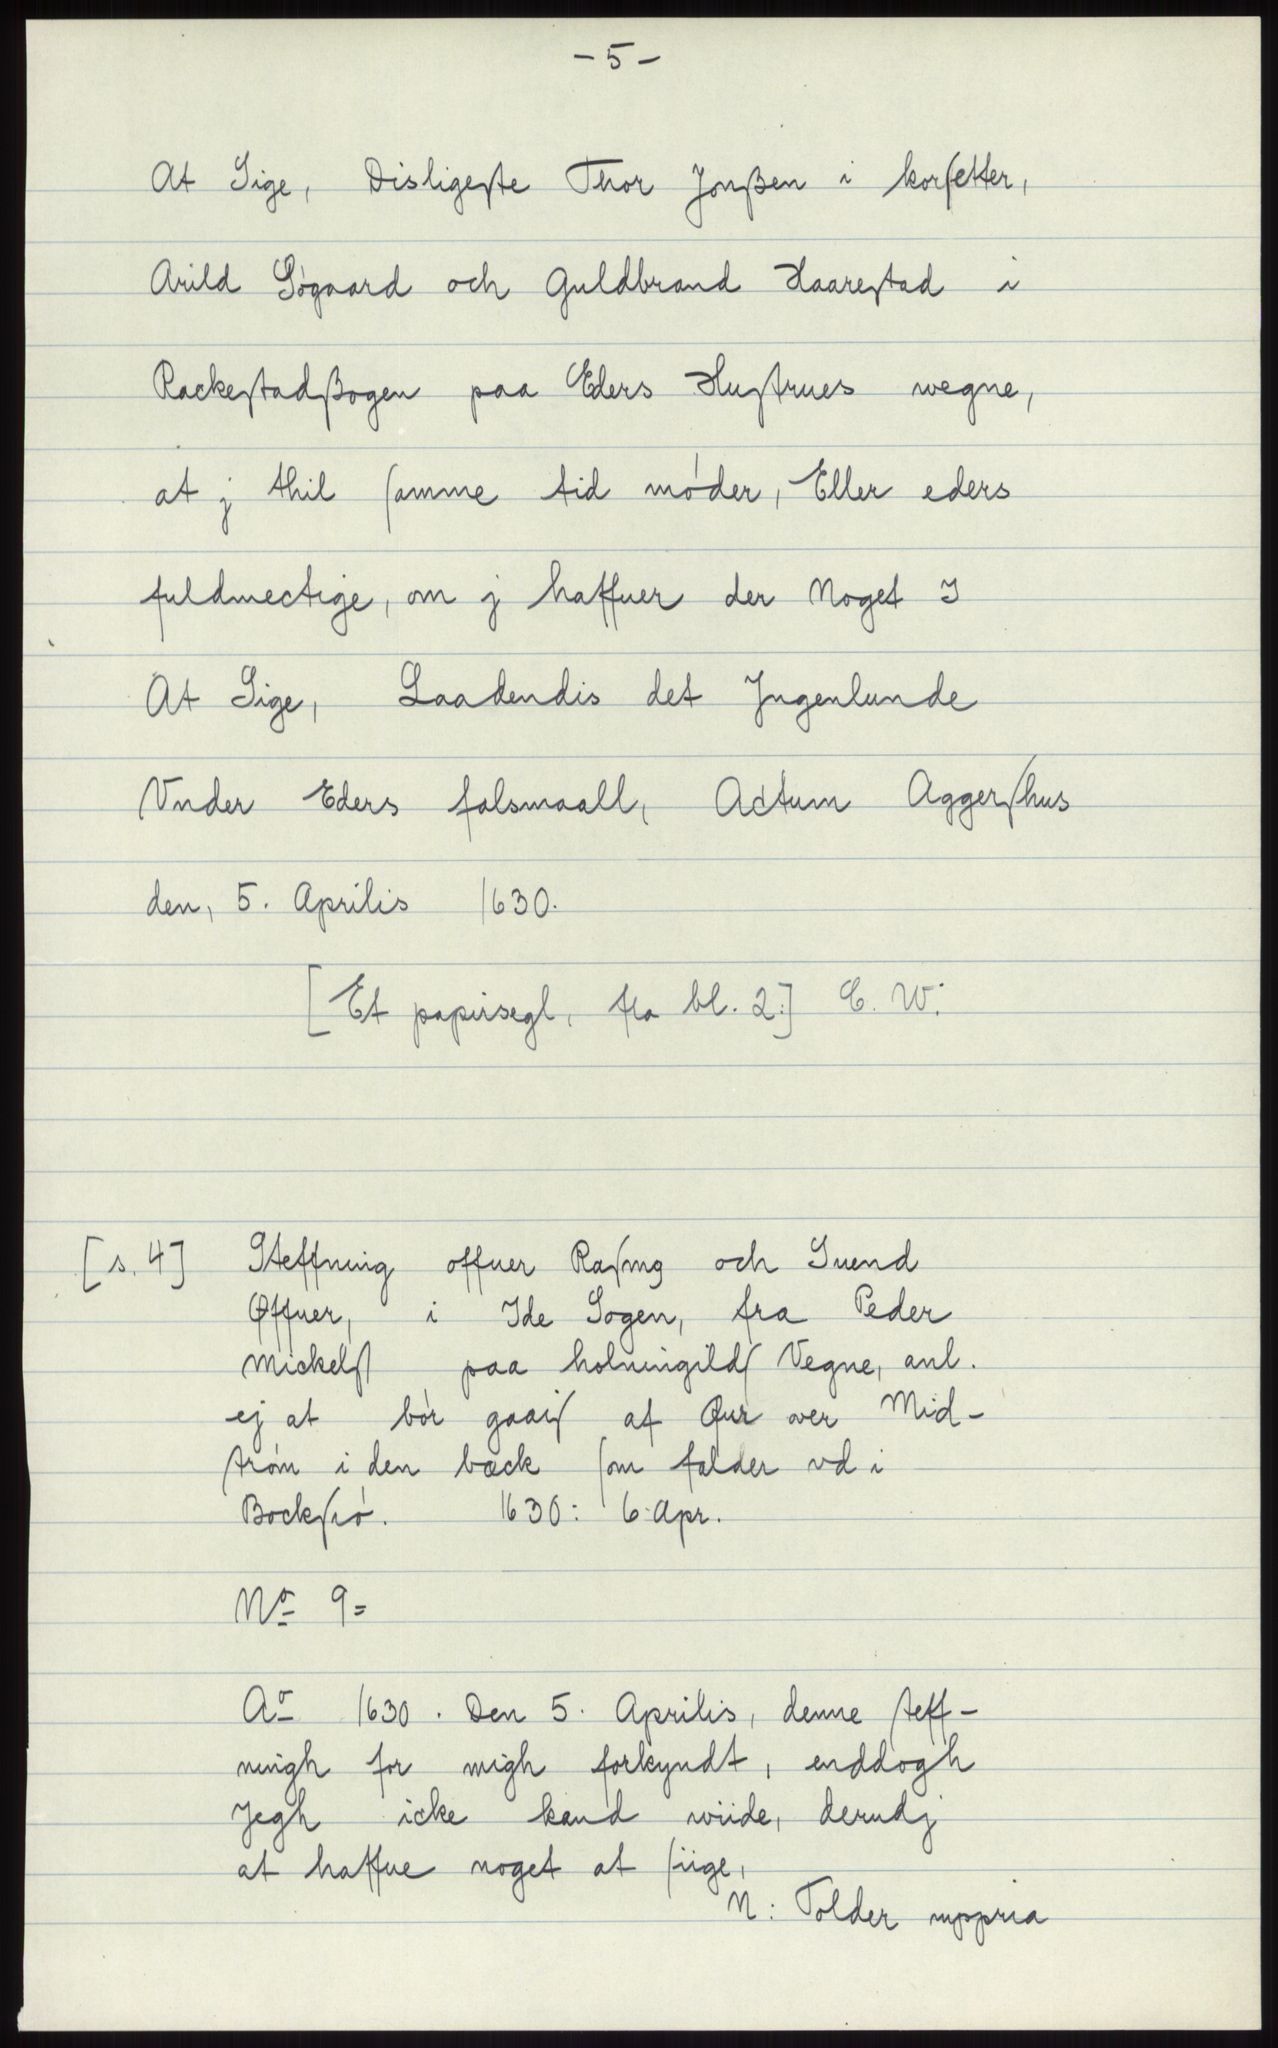 - 5 -
At Sige, Disligeste Thor Jonßen i korsetter,
Arild Søgaard och Guldbrand Haarestad i
Rackestadßogen paa Eders Hustrues wegne,
at j thil samme tid møder, Eller eders
fuldmectige, om j haffuer der Noget I
At Sige, Laadendis det Jngenlunde
Vnder Eders falsmaall, Actum Aggershus
den, 5. Aprilis 1630.
[Et papirsegl, fra bl. 2.] C. W.
[s. 4] Steffning offuer Rasmg och Suend
Øffuer, i Ide Sogen, fra Peder
Mickels paa holmingilds Vegne, anl.
ej at bör gaais af Qur over Mid-
strøm i den bæck som falder vd i
Bocksiø. 1630: 6 Apr.
No 9=
Ao 1630. Den 5. Aprilis, denne steff-
ningh for migh forkyndt, enddogh
Jegh icke kand wiide, derudj
at haffue noget at siige,
N: Tolder mppria